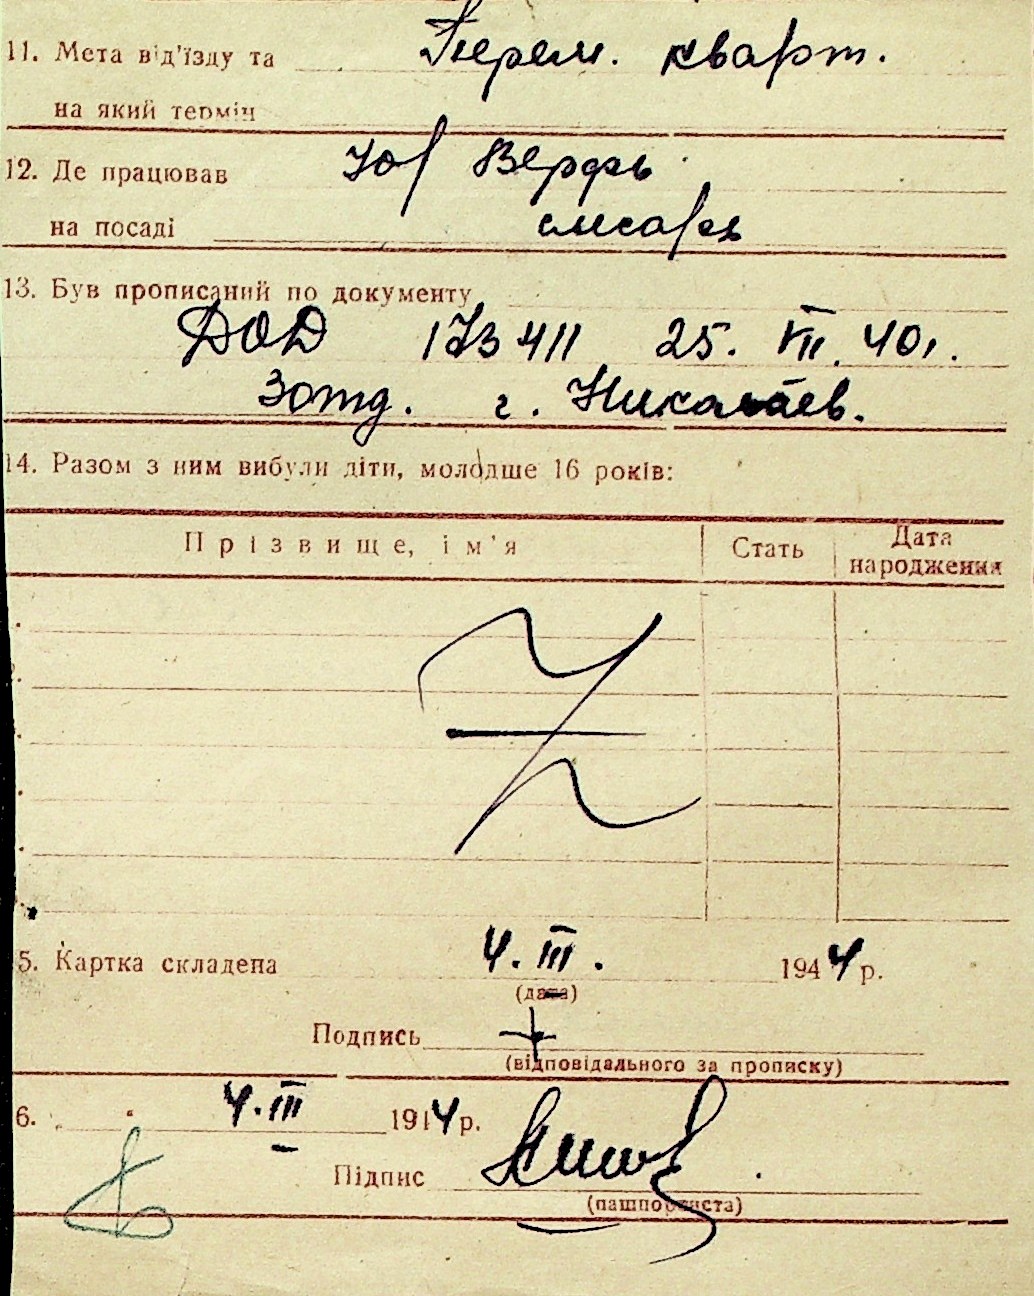 11. Мета від'їзду та Перем. кварт.
на який термін
12. Де працював Юж Верфь
на посаді слесарь
13. Був прописаний по документу
173411 25. VII. 40г.
3 отд. г. Николаев.
14. Разом з ним вибули діти, молодше 16 років:
Прізвище, ім'я Стать Дата народження
5. Картка складена 4. III. 1944 р.
(дата)
Подпись
(відповідального за прописку)
6. 4. III 1944 р.
Підпис
(пашпортиста)